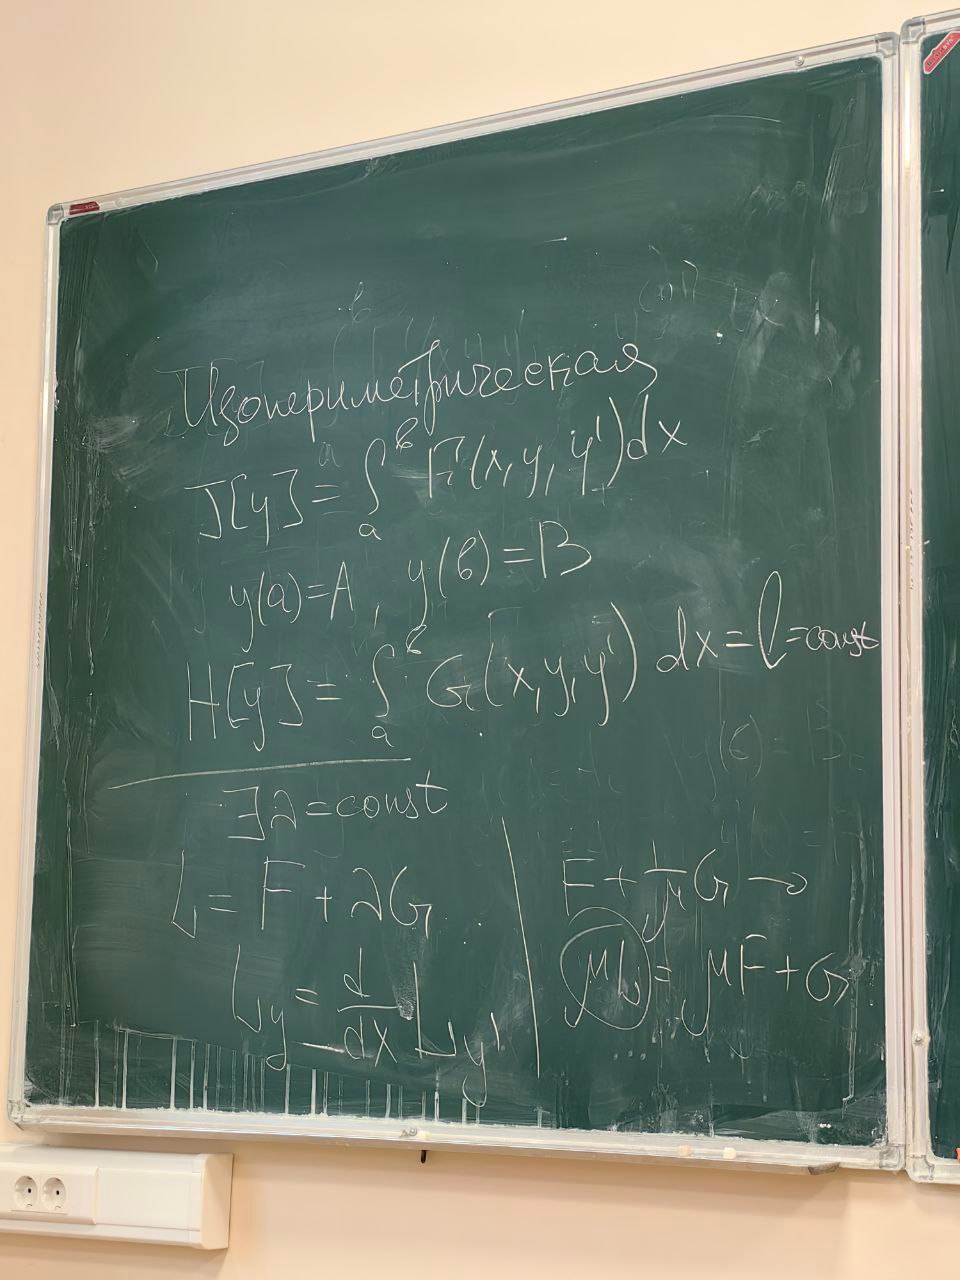 Изопериметрическая
J[y] = ∫ₐᵇ F(x, y, y') dx
y(a) = A, y(b) = B
H[y] = ∫ₐᵇ G(x, y, y') dx = l = const
∃ λ = const
L = F + λG
L_y = d/dx L_y'
F + 1/μ G →
μL = μF + G
...